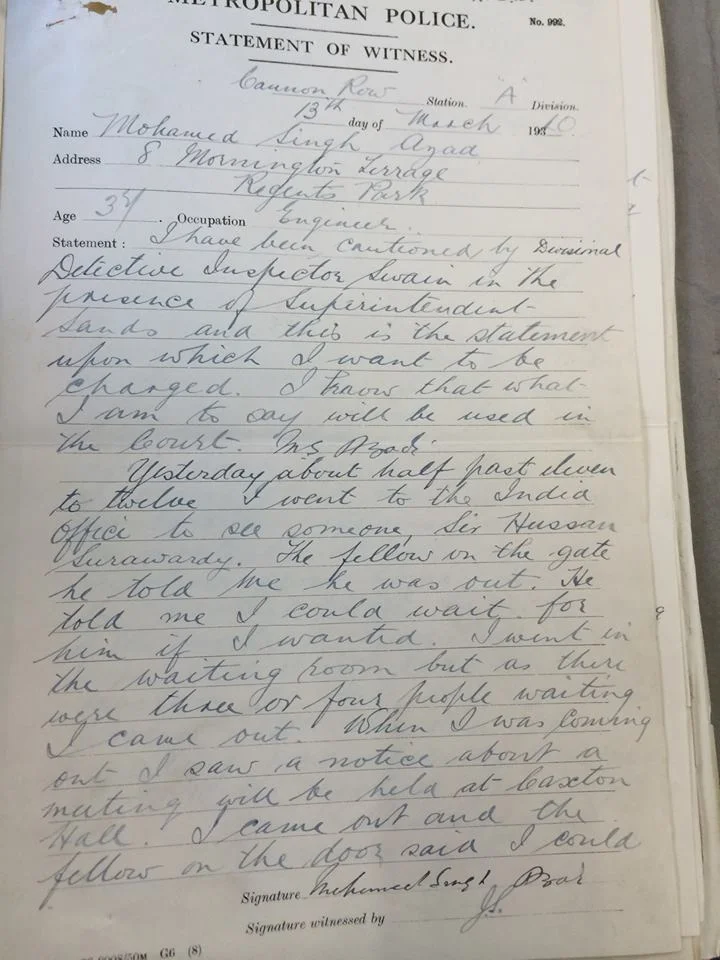 METROPOLITAN POLICE.
No. 992.
STATEMENT OF WITNESS.
Cannon Row Station. "A" Division.
13th day of March 1940.
Name Mohamed Singh Azad
Address 8 Mornington Terrage
Regents Park
Age 37. Occupation Engineer.
Statement: I have been cautioned by Divisional
Detective Inspector Swain in the
presence of Superintendent
Sands and this is the statement
upon which I want to be
charged. I know that what
I am to say will be used in
the Court. M S Azad.
Yesterday about half past eleven
to twelve I went to the India
Office to see someone, Sir Hussan
Surawardy. The fellow on the gate
he told me he was out. He
told me I could wait for
him if I wanted. I went in
the waiting room but as there
were three or four people waiting
I came out. When I was coming
out I saw a notice about a
meeting will be held at Caxton
Hall. I came out and the
fellow on the door said I could
Signature Mohamed Singh Azad
Signature witnessed by J.S.
G6 (8)